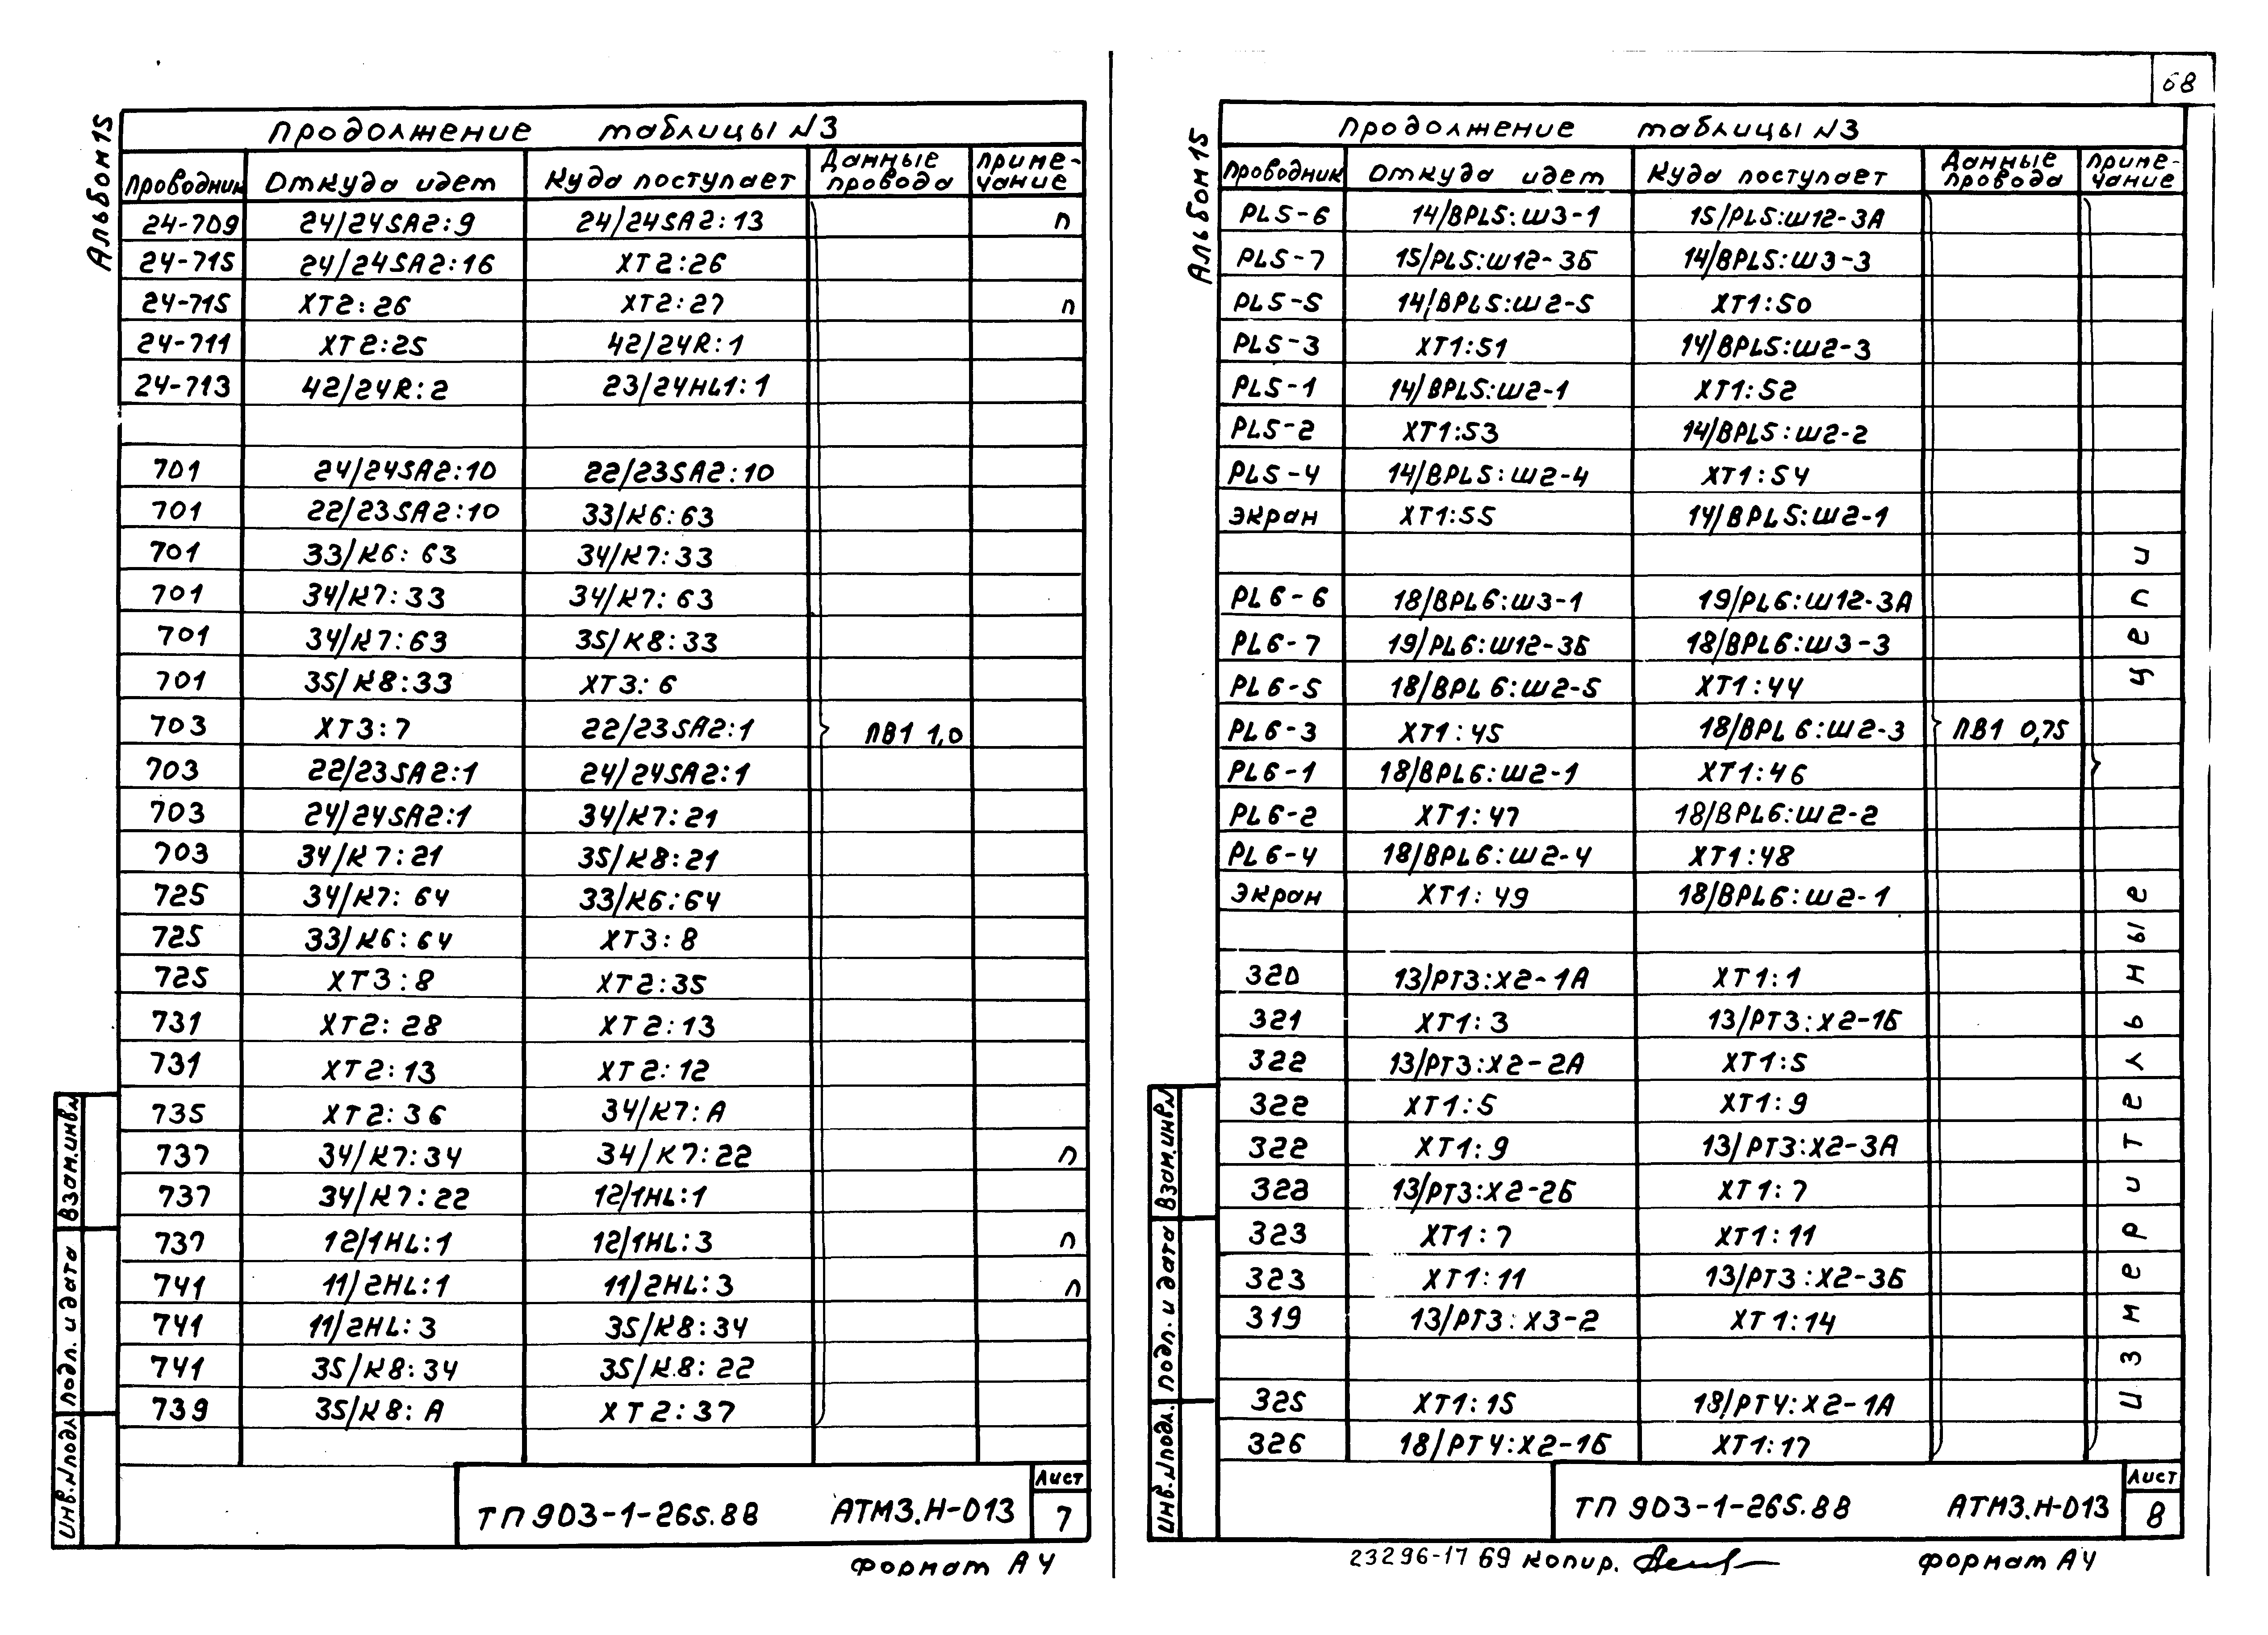 Альбом 15
Продолжение таблицы N3
Проводник Откуда идет Куда поступает Данные провода Приме-чание
24-709 24/24SA2:9 24/24SA2:13 п
24-715 24/24SA2:16 XT2:26
24-715 XT2:26 XT2:27 п
24-711 XT2:25 42/24R:1
24-713 42/24R:2 23/24HL1:1
701 24/24SA2:10 22/23SA2:10
701 22/23SA2:10 33/K6:63
701 33/K6:63 34/K7:33
701 34/K7:33 34/K7:63
701 34/K7:63 35/K8:33
701 35/K8:33 XT3:6
703 XT3:7 22/23SA2:1 ПВ1 1,0
703 22/23SA2:1 24/24SA2:1
703 24/24SA2:1 34/K7:21
703 34/K7:21 35/K8:21
725 34/K7:64 33/K6:64
725 33/K6:64 XT3:8
725 XT3:8 XT2:35
731 XT2:28 XT2:13
731 XT2:13 XT2:12
735 XT2:36 34/K7:A
737 34/K7:34 34/K7:22 п
737 34/K7:22 12/1HL:1
737 12/1HL:1 12/1HL:3 п
741 11/2HL:1 11/2HL:3 п
741 11/2HL:3 35/K8:34
741 35/K8:34 35/K8:22
739 35/K8:A XT2:37
Взам.инв.N
Подп. и дата
Инв.Nподл.
ТП 903-1-265.88 АТМ3.Н-013 Лист 7
Формат А4
68
Альбом 15
Продолжение таблицы N3
Проводник Откуда идет Куда поступает Данные провода Приме-чание
PL5-6 14/BPL5:Ш3-1 15/PL5:Ш12-3А
PL5-7 15/PL5:Ш12-3Б 14/BPL5:Ш3-3
PL5-5 14/BPL5:Ш2-5 XT1:50
PL5-3 XT1:51 14/BPL5:Ш2-3
PL5-1 14/BPL5:Ш2-1 XT1:52
PL5-2 XT1:53 14/BPL5:Ш2-2
PL5-4 14/BPL5:Ш2-4 XT1:54
Экран XT1:55 14/BPL5:Ш2-1
PL6-6 18/BPL6:Ш3-1 19/PL6:Ш12-3А
PL6-7 19/PL6:Ш12-3Б 18/BPL6:Ш3-3
PL6-5 18/BPL6:Ш2-5 XT1:44
PL6-3 XT1:45 18/BPL6:Ш2-3 ПВ1 0,75
PL6-1 18/BPL6:Ш2-1 XT1:46
PL6-2 XT1:47 18/BPL6:Ш2-2
PL6-4 18/BPL6:Ш2-4 XT1:48
Экран XT1:49 18/BPL6:Ш2-1
320 13/PT3:X2-1А XT1:1
321 XT1:3 13/PT3:X2-1Б
322 13/PT3:X2-2А XT1:5
322 XT1:5 XT1:9
322 XT1:9 13/PT3:X2-3А
323 13/PT3:X2-2Б XT1:7
323 XT1:7 XT1:11
323 XT1:11 13/PT3:X2-3Б
319 13/PT3:X3-2 XT1:14
325 XT1:15 18/PT4:X2-1А
326 18/PT4:X2-1Б XT1:17
Измерительные цепи
Взам.инв.N
Подп. и дата
Инв.Nподл.
ТП 903-1-265.88 АТМ3.Н-013 Лист 8
23296-17 69 Копир. Формат А4